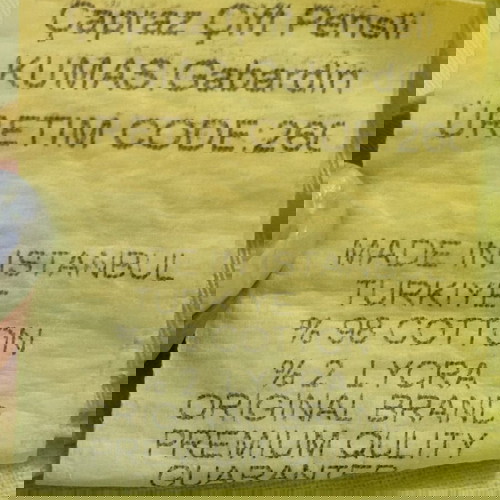 Çapraz Çift Pensli
KUMAS: Gabardin
ÜRETIM CODE:
MADE IN ISTANBUL
TURKIYE
% 98 COTTON
% 2 LYCRA
ORIGINAL BRAND
PREMIUM QULITY
GUARANTEE